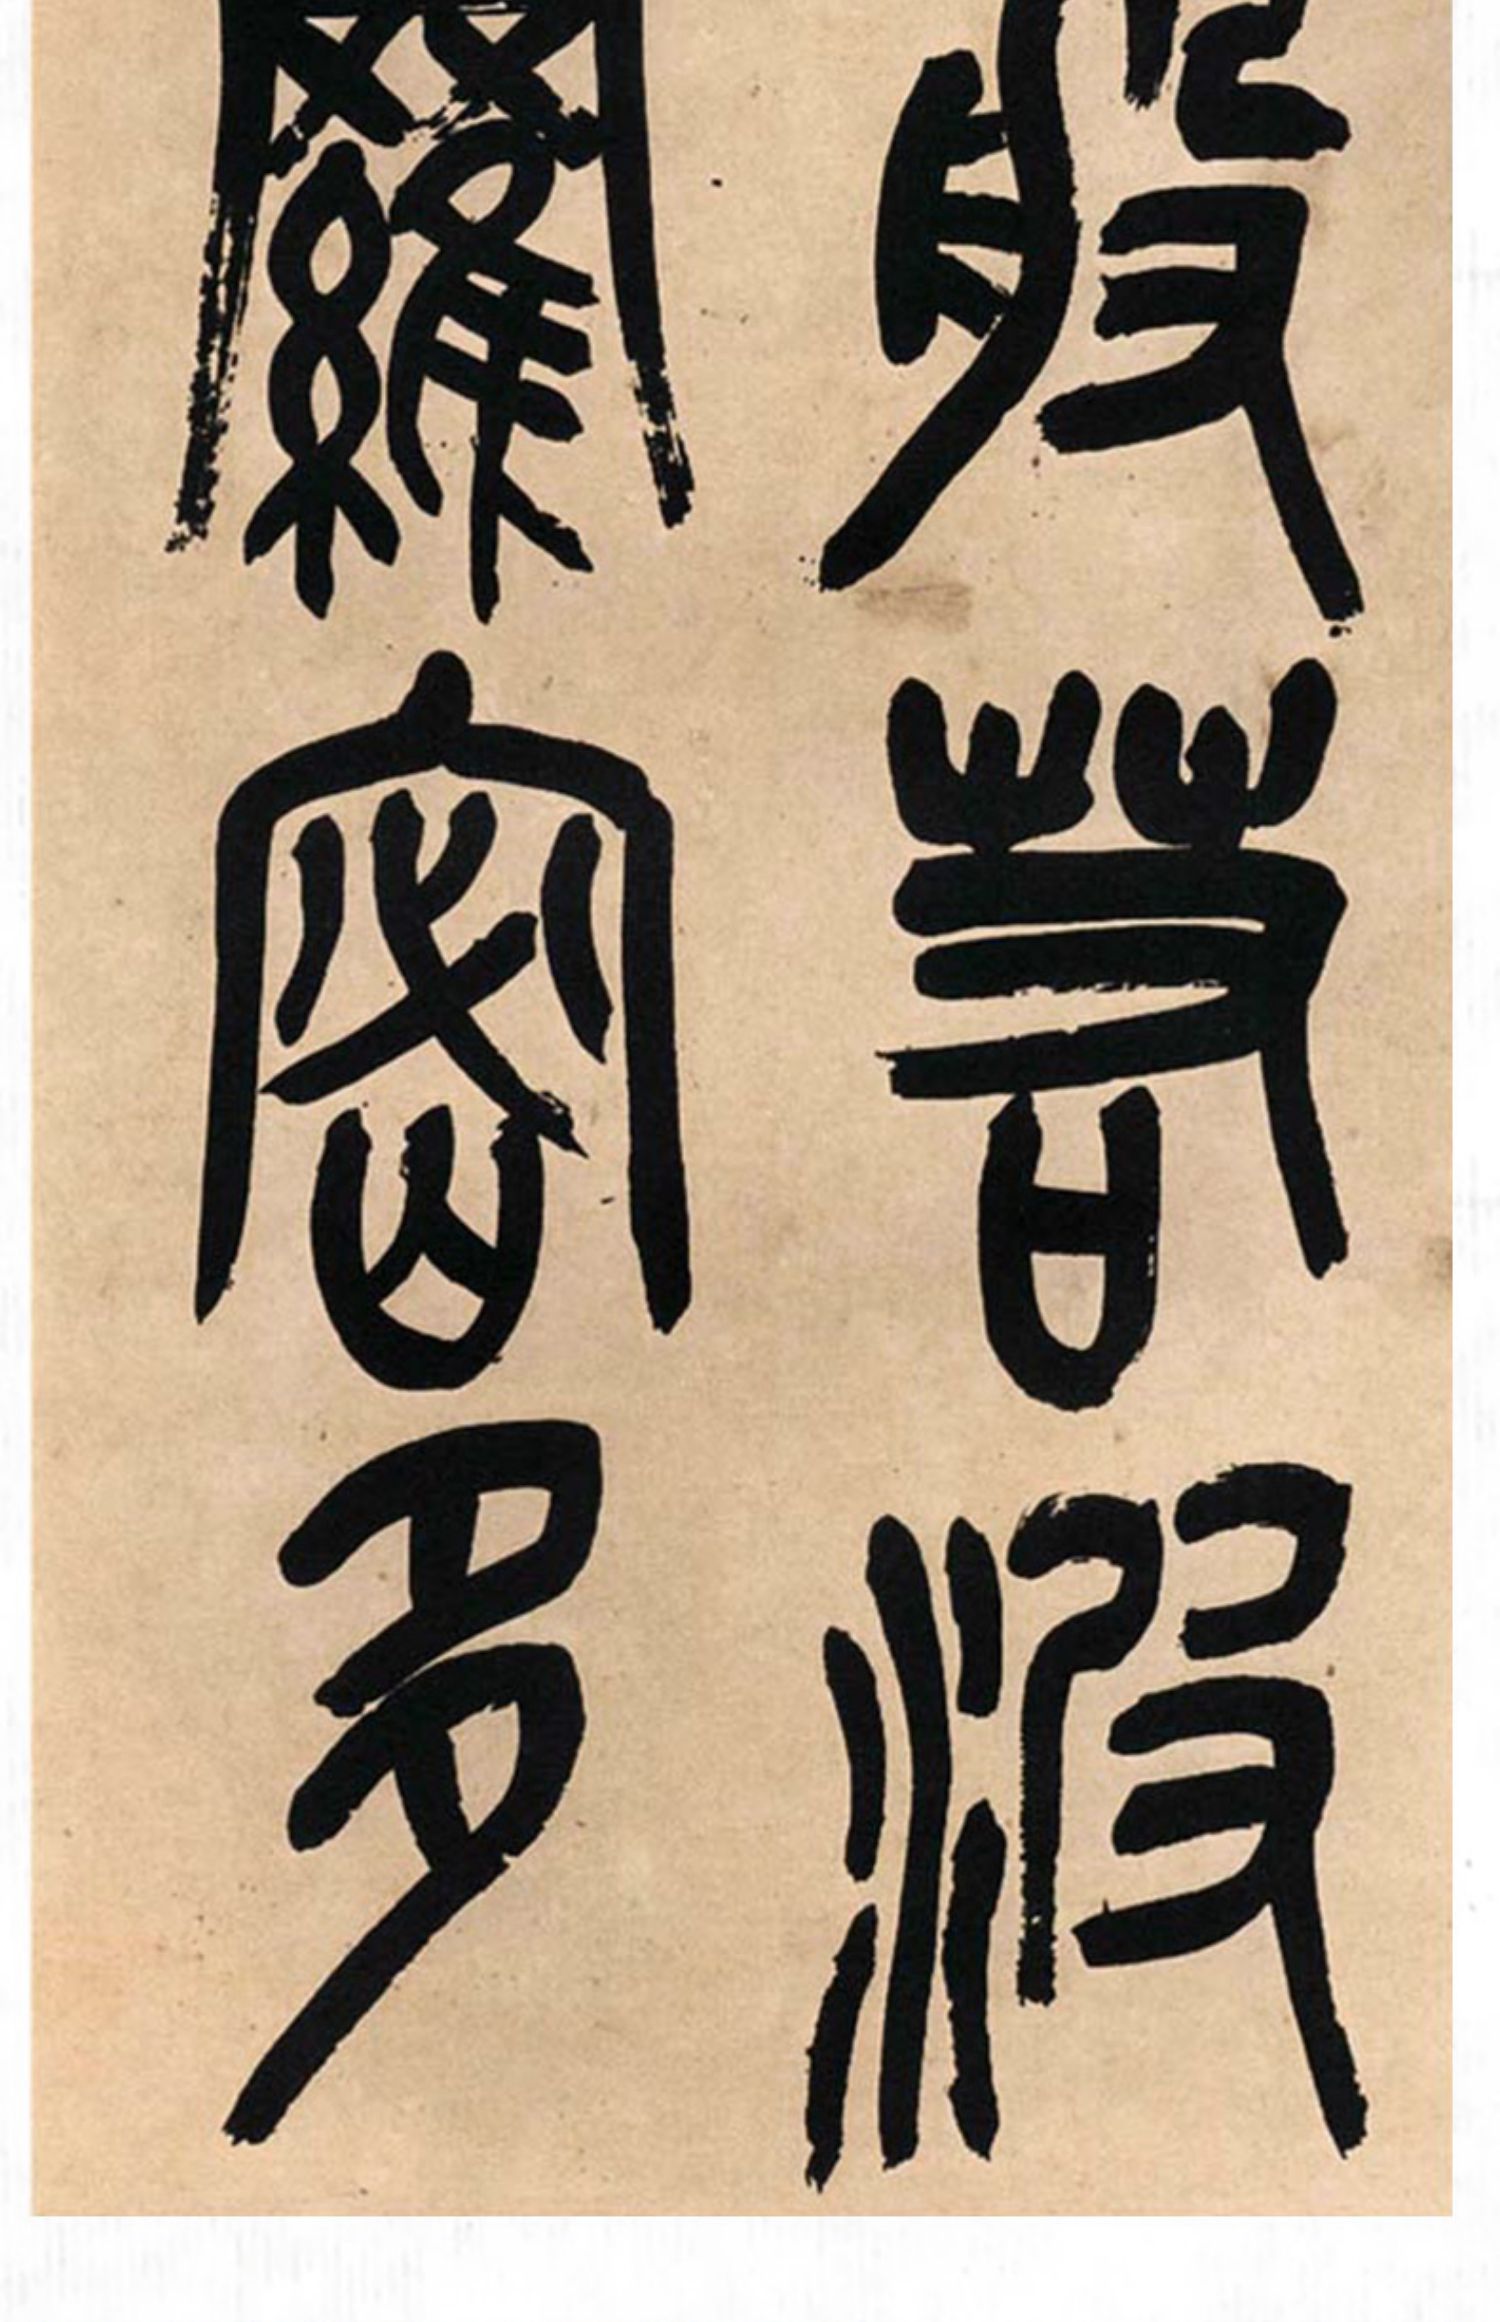 般若波
羅密多